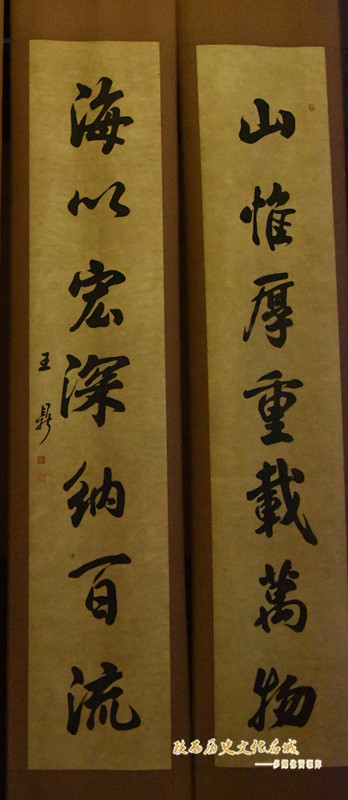 山惟厚重載萬物
海以宏深納百流
王鼎
陕西历史文化名城